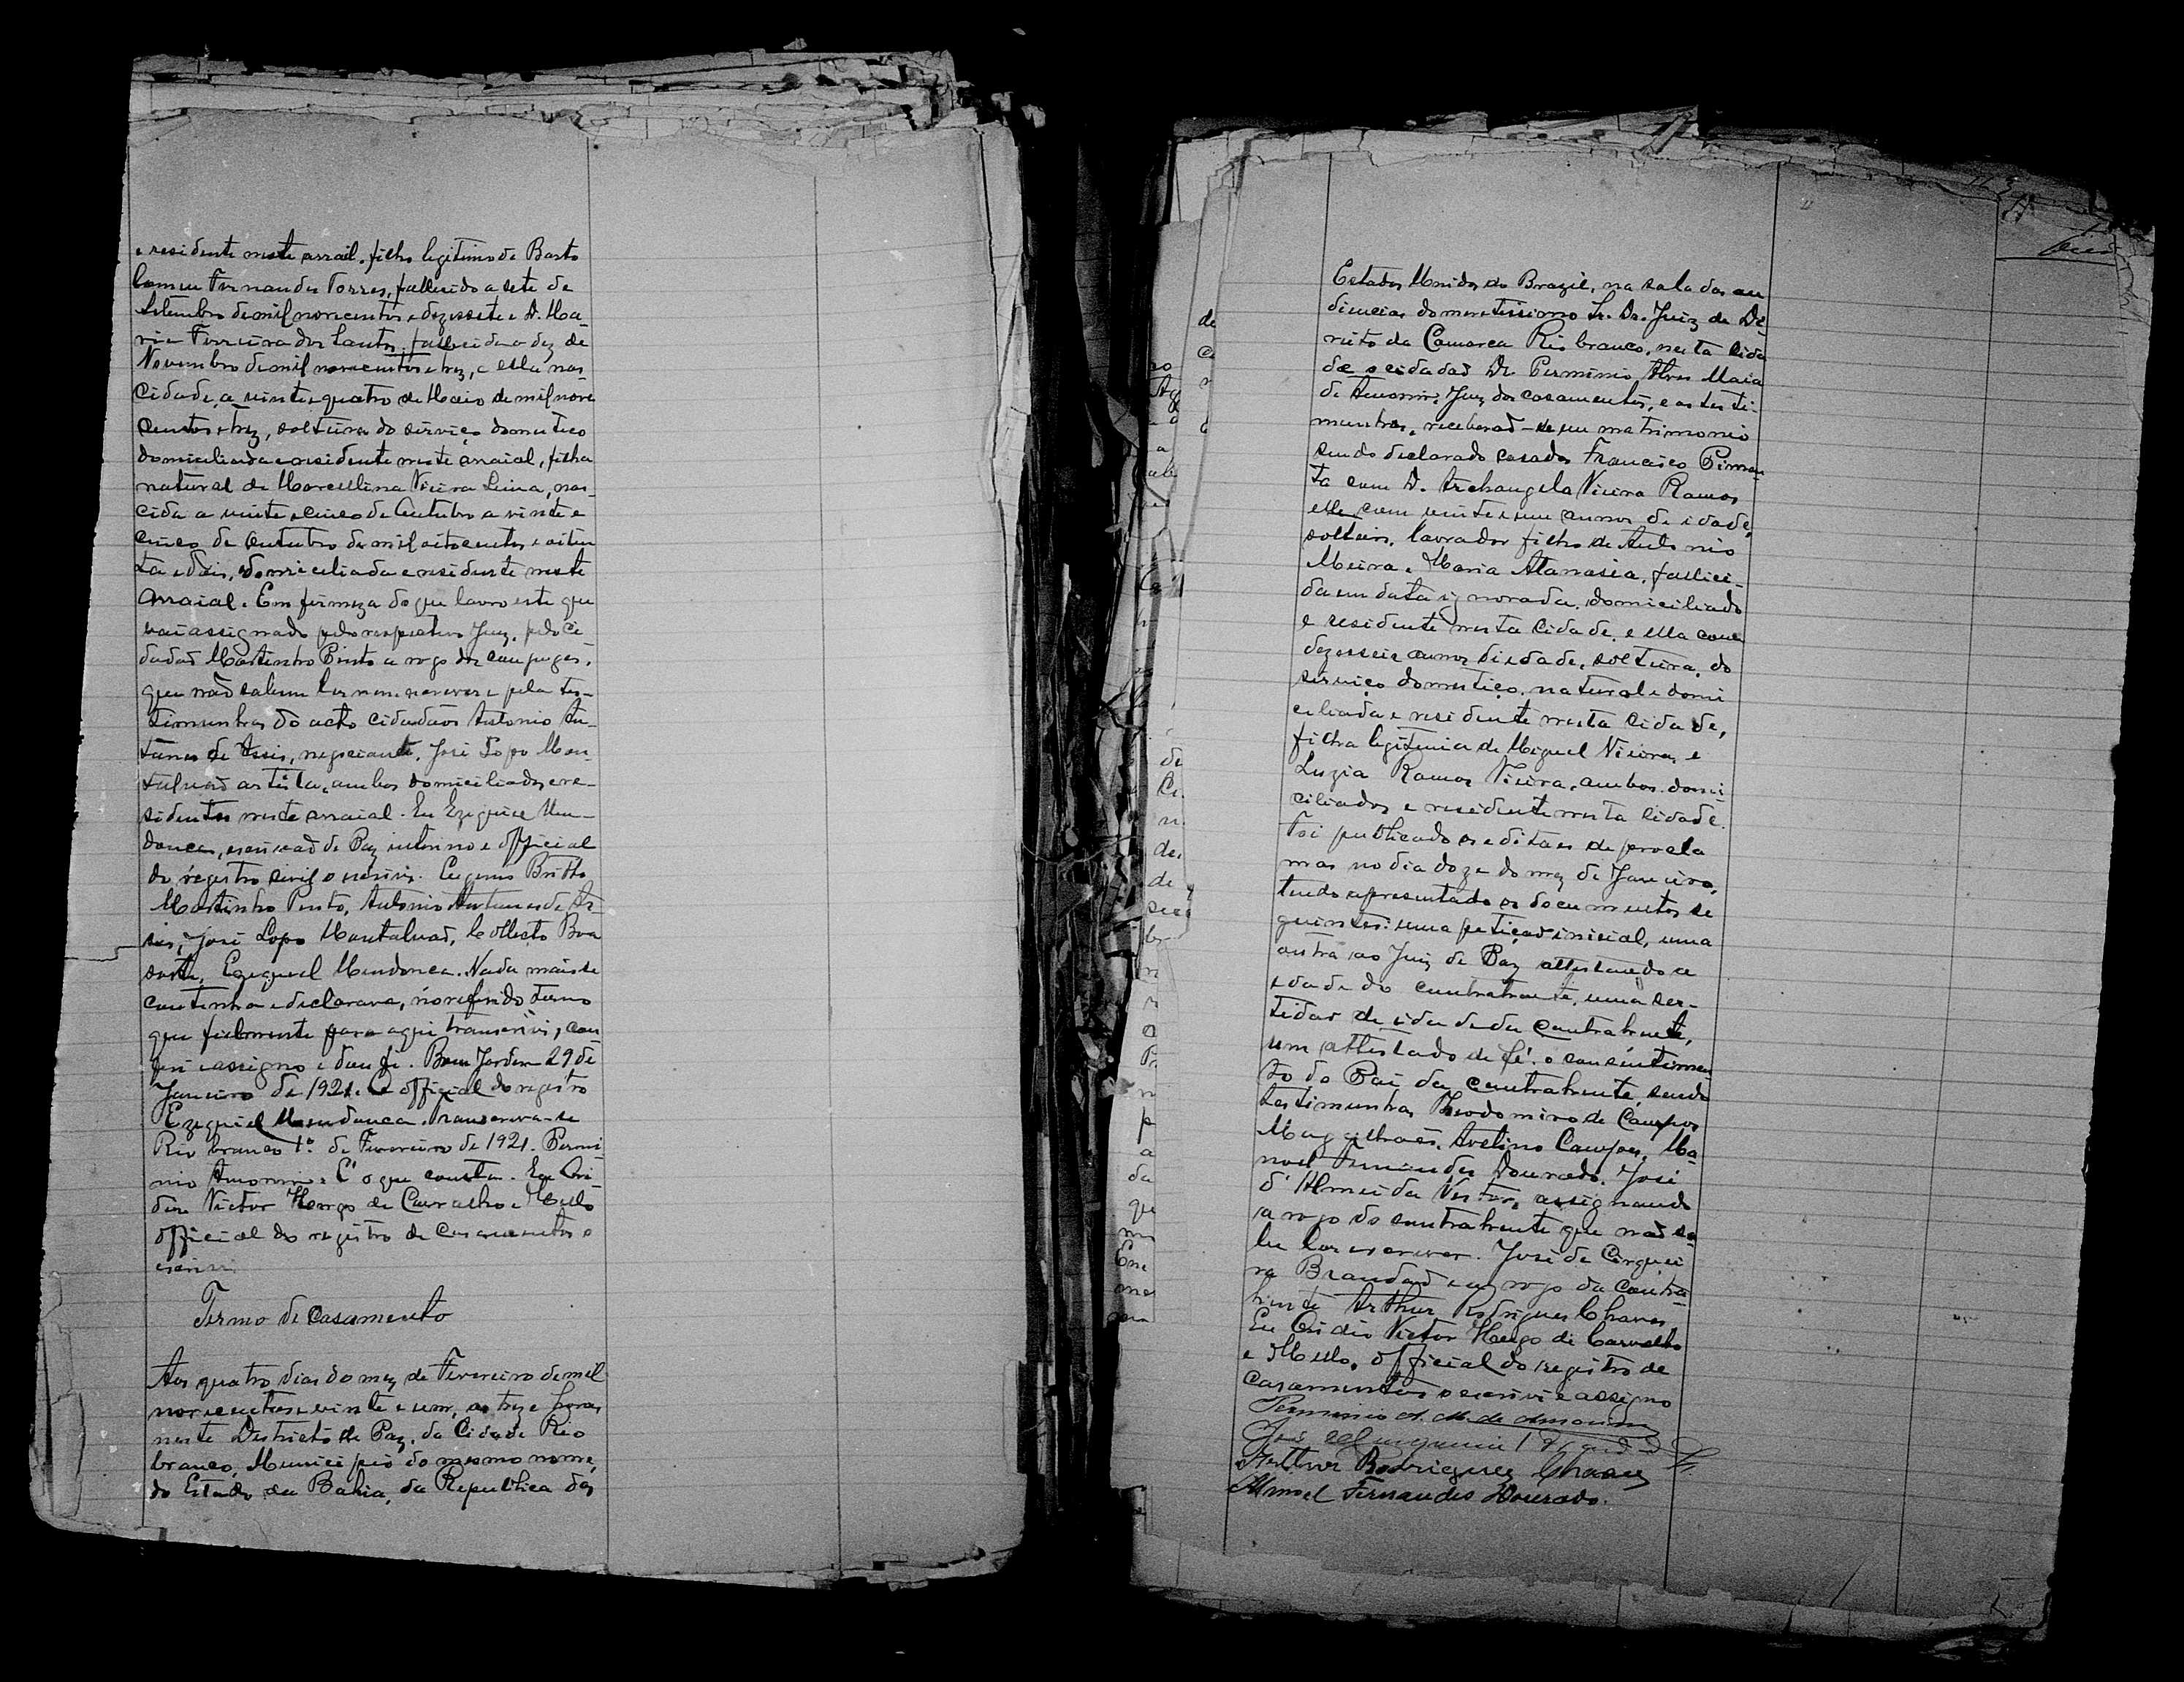 e residente neste arraial, filho legitimo de Barto
lomeu Fernandes Torres, fallecido a sete de
Setembro de mil novecentos e dezessete e D. Ma-
ria Ferreira dos Santos, fallecida a dez de
Novembro de mil novecentos e trez, e ella nas-
cida de, a vinte e quatro de Maio de mil nove
centos e trez, solteira do serviço domestico
domiciliada e residente neste arraial, filha
natural de Marcellina Vieira Lima, nas-
cida a vinte e cinco de Outubro a vinte e
cinco de Outubro de mil oitocentos e oiten
ta e dois, domiciliada e residente neste
arraial. Em firmeza do que lavro este que
vai assignado pelo respectivo Juiz, pelo ci-
dadaõ Martinho Pinto a rogo dos conjuges,
que naõ sabem ler nem escrever e pela tes-
timunhas do acto cidadãos Antonio An-
tunes de Assis, negociante, José Lopo Mon-
talvaõ artista, ambos domiciliados e re-
sidentes neste arraial. Eu Ezequiel Men-
donca, escrivaõ de Paz interino e official
do registro civil o escrivi. Eugenio Britto
Martinho Pinto, Antonio Antunes de As-
sis, José Lopo Montalvaõ, Collecto Boa
sorte, Ezequiel Mendonca. Nada mais se
continha e declarava, no referido termo
que fielmente para aqui transcrivi, con
feri e assigno e dou fé. Bom Jardim 29 de
Janeiro de 1921. O official do registro
Ezequiel Mendonca. Transcreva-se
Rio branco 1º. de Fevereiro de 1921. Permi-
nio Amorim. E' o que consta. Eu Ovi-
dio Victor Hugo de Carvalho e Mello
official do registro de casamentos o
escrivi.
Termo de Casamento
Aos quatro dias do mez de Fevereiro de mil
novecentos e vinte e um, as treze horas
neste Destricto de Paz, da Cidade Rio
branco, Municipio do mesmo nome,
do Estado da Bahia, da Republica dos
Estados Unidos do Brazil, na sala das au
diencias do meretissimo Sr. Dr. Juiz de Di-
reito da Comarca Rio branco, nesta Cida
de o cidadaõ Dr. Perminio Alves Maia
de Amorim, Juiz dos casamentos, e as testi-
munhas, receberaõ-se em matrimonio
sendo declarado casados Francisco Pimen
ta com D. Archangela Vieira Ramos
elle com vinte e um annos de idade,
solteiro, lavrador filho de Antonio
Meira e Maria Atanasia, falleci-
da em data ignorada, domiciliado
e residente nesta Cidade, e ella com
dezesseis annos de idade, solteira, do
serviço domestico, natural e domi
ciliada e residente nesta Cidade,
filha legitimia de Miguel Vieira, e
Luzia Ramos Vieira, ambos domi-
ciliados e residente nesta Cidade.
Foi publicado os editaes de procla
mas no dia doze do mez de Janeiro,
tendo apresentado os documentos se
guintes: uma petiçaõ inicial, uma
outra ao Juiz de Paz attestando a
edade do contratante, uma cer-
tidaõ de idade da contrahente,
um attestado de fé. o consentimen
to do Pai da contrahente, sendo
testimunhas Theodomiro de Campos
Magalhaẽs, Avelino Campos, Ma-
noel Fernandes Dourado, José
d'Almeida assignando
a rogo do contrahente que naõ sa-
be ler escrever. José de Cirquei
ra Brandaõ e a rogo da contra-
hente Arthur Rodrigues Chaves
Eu Ovidio Victor Hugo de Carvalho
e Mello, official do registro de
casamentos o escrivi e assigno
Perminio A. M. de Amorim
Arthur Rodrigues Chaves
Manoel Fernandes Dourado.